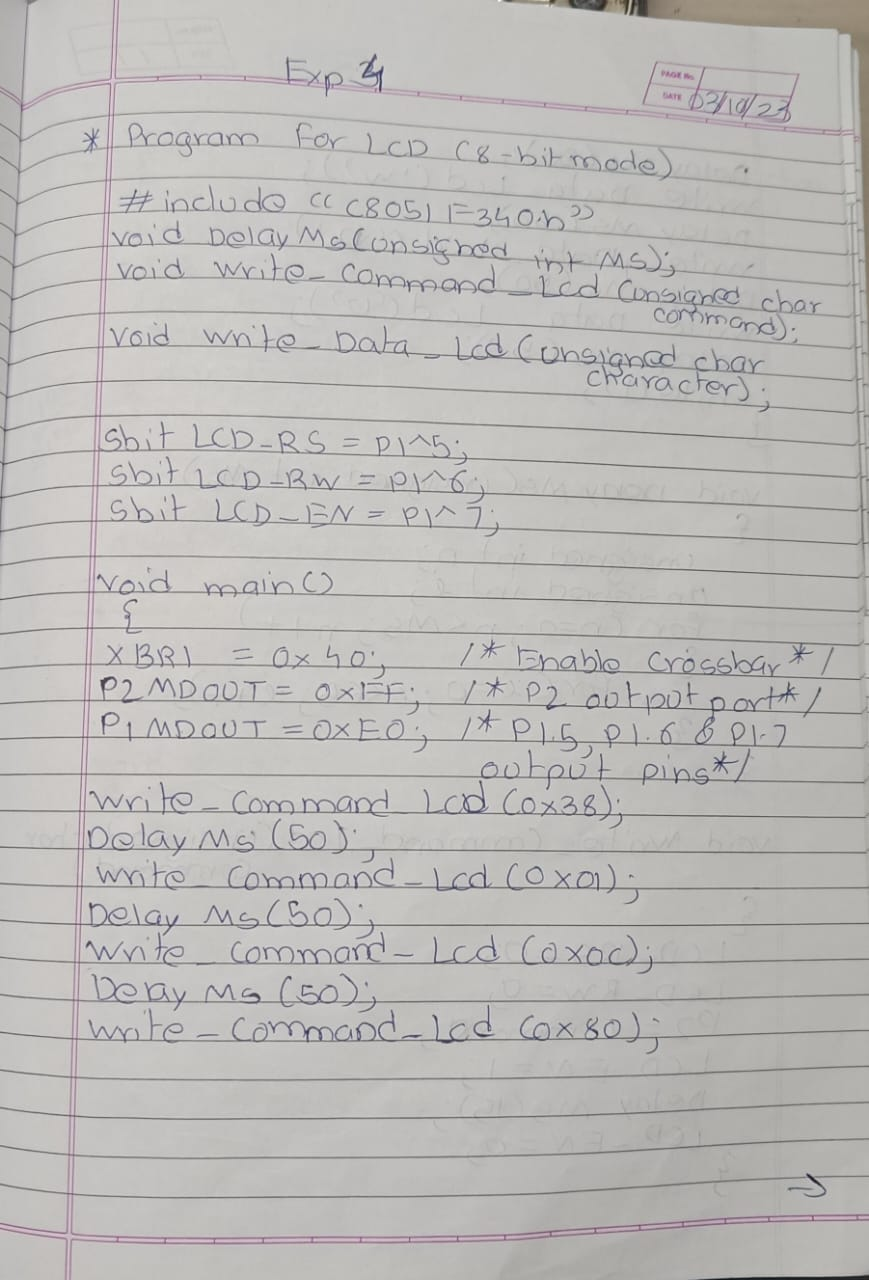 Exp 4
PAGE No.
DATE 03/10/23
* Program for LCD (8-bit mode)
# include "C8051F340.h"
void DelayMs(unsigned int Ms);
void write_command_Lcd (unsigned char
command);
void write_Data_Lcd (unsigned char
character);
Sbit LCD_RS = P1^5;
Sbit LCD_RW = P1^6;
Sbit LCD_EN = P1^7;
void main()
{
XBR1 = 0x40; /* Enable crossbar */
P2MDOUT = 0xFF; /* P2 output port*/
P1MDOUT = 0xE0; /* P1.5, P1.6 & P1.7
output pins*/
write_command Lcd (0x38);
Delay Ms (50);
write_command_Lcd (0x01);
Delay Ms (50);
write_command_Lcd (0x0C);
Delay Ms (50);
write_command_Lcd (0x80);
→